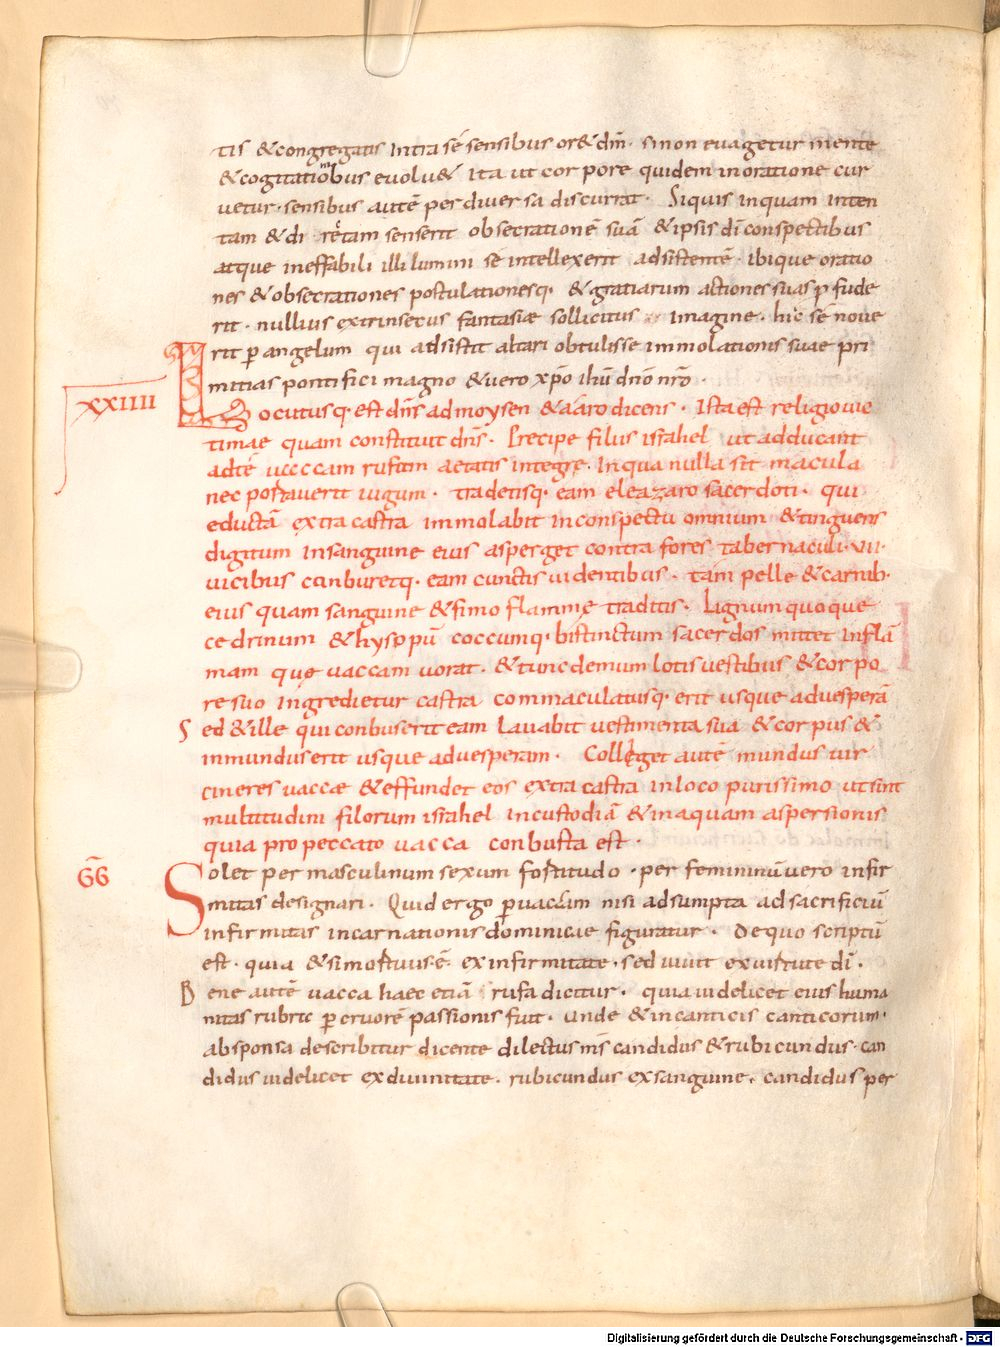 tis &congregatis intra sē sensibus or& dm̄. si non euagetur mente
&cogitationibus euolu& ita ut corpore quidem inoratione cur
uetur. sensibus autē per diuersa discurrat. Siquis inquam inten
tam & directam senserit obsecrationē suā &ipsis dī conspectibus
atque ineffabili illi lumini sē intellexerit adsistentē. ibique oratio
nes &obsecrationes postulationesq. &gratiarum actiones suas p fude
rit. nullius extrinsecus fantasiæ sollicitus imagine. hic sē noue
rit p angelum qui adsistit altari obtulisse immolationis suae pri
mitias pontifici magno &uero xp̄o ihū dn̄o nr̄o.
XXIIII
Locutusq. est dn̄s ad moysen &aaro dicens. Ista est religio uic
timae quam constituit dn̄s. Precipe filiis israhel ut adducant
adtē uaccam rufam aetatis integrę. Inqua nulla sit macula
nec portauerit iugum. tradetisq. eam eleazaro sacerdoti. qui
eductā extra castra immolabit inconspectu omnium &tinguens
digitum insanguine eius asperget contra fores tabernaculi. VII.
uicibus conburetq. eam cunctis uidentibus. tam pelle &carnib.
eius quam sanguine &fimo flammę traditis. Lignum quoque
cedrinum &hysopū coccumq. bistinctum sacerdos mittet inflā
mam quę uaccam uorat. &tunc demum lotis uestibus &corpo
re suo ingredietur castra commaculatusq. erit usque aduesperā
Sed &ille qui conbuserit eam Lauabit uestimenta sua &corpus &
inmundus erit usque aduesperam. Colleget autē mundus uir
cineres uaccæ &effundet eos extra castra inloco purissimo ut sint
multitudini filiorum israhel incustodiā &inaquam aspersionis
quia pro peccato uacca conbusta est.
GḠ
Solet per masculinum sexum fortitudo. per femininū uero infir
mitas designari. Quid ergo p uaccam nisi adsumpta ad sacrificiū
infirmitas incarnationis dominicae figuratur. De quo scriptū
est. quia &si mortuus .ē. ex infirmitate. sed uiuit ex uirtute dī.
Bene autē uacca haec etiā rufa dicitur. quia uidelicet eius huma
nitas rubric p cruorē passionis fuit. unde &incanticis canticorum.
absponsa describitur dicente dilectus ms̄ candidus &rubicundus. can
didus uidelicet exdiuinitate. rubicundus exsanguine. candidus per
Digitalisierung gefördert durch die Deutsche Forschungsgemeinschaft - DFG